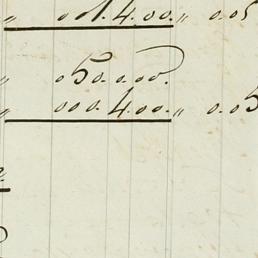 „ 001.4.00.„ 0.05
„ 050.0.00.
„ 000.4.00.„ 0.05